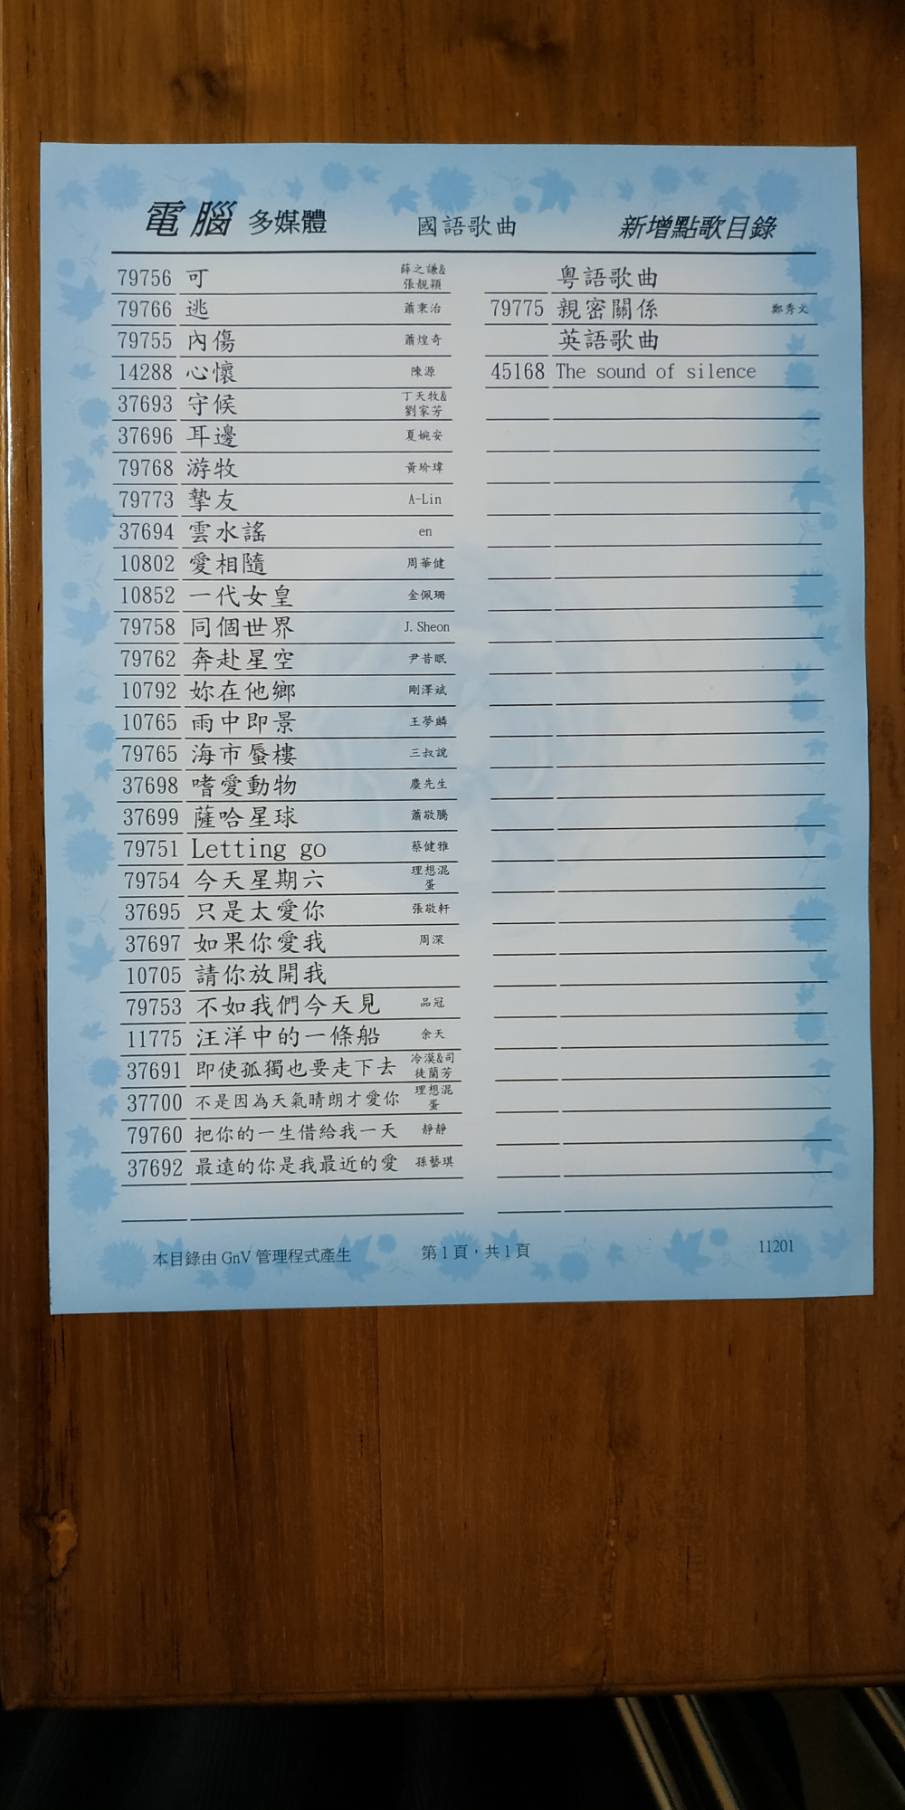 電腦 多媒體 國語歌曲 新增點歌目錄
79756 可 薛之謙&張靚穎
79766 逃 蕭秉治
79755 內傷 蕭煌奇
14288 心懷 陳源
37693 守候 丁天牧&劉家芳
37696 耳邊 夏婉安
79768 游牧 黃玠瑋
79773 摯友 A-Lin
37694 雲水謠 en
10802 愛相隨 周華健
10852 一代女皇 金佩珊
79758 同個世界 J.Sheon
79762 奔赴星空 尹昔眠
10792 妳在他鄉 剛澤斌
10765 雨中即景 王夢麟
79765 海市蜃樓 三叔說
37698 嗜愛動物 麋先生
37699 薩哈星球 蕭敬騰
79751 Letting go 蔡健雅
79754 今天星期六 理想混蛋
37695 只是太愛你 張敬軒
37697 如果你愛我 周深
10705 請你放開我
79753 不如我們今天見 品冠
11775 汪洋中的一條船 余天
37691 即使孤獨也要走下去 冷漠&司徒蘭芳
37700 不是因為天氣晴朗才愛你 理想混蛋
79760 把你的一生借給我一天 靜靜
37692 最遠的你是我最近的愛 孫藝琪
粵語歌曲
79775 親密關係 鄭秀文
英語歌曲
45168 The sound of silence
本目錄由 GnV 管理程式產生 第1頁，共1頁 11201